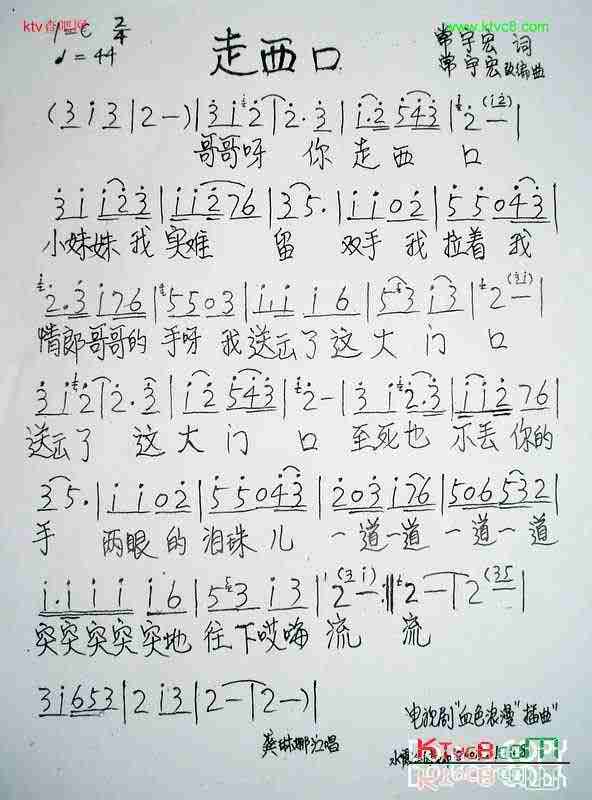 ktv吉他网
www.ktvc8.com
1=C 2/4
♩=44
走西口
常宇宏 词
常宇宏 改编曲
(3 i 3 | 2 - ) | 3 i 2 | 2 · 3 | i · 2 5 4 3 | 2 - |
哥哥呀 你 走 西 口
3 i i 2 3 | i i 2 7 6 | 3 5 · | i i 0 2 | 5 5 0 4 3 |
小妹妹 我 实难 留 双手 我 拉着 我
2 · 3 i 7 6 | 5 5 0 3 | i i i 6 | 5 3 i 3 | 2 - |
情郎哥哥的 手呀 我 送出了 这 大 门 口
3 i 2 | 2 · 3 | i 2 5 4 3 | 2 - | 3 i 2 · 3 | i i 2 7 6 |
送出了 这 大 门 口 至死也 不丢 你的
3 5 · | i i 0 2 | 5 5 0 4 3 | 2 0 3 i 7 6 | 5 0 6 5 3 2 |
手 两眼 的 泪珠 儿 一道一道 一道一道
i · i i i i 6 | 5 3 i 3 | 2 - :‖ 2 - | 2 (3 5
突突突突突地 往下哎嗨 流 流
3 i 6 5 3 | 2 i 3 | 2 - | 2 - ) |
电视剧"血色浪漫"插曲"
龚琳娜演唱
KTVC8.COM